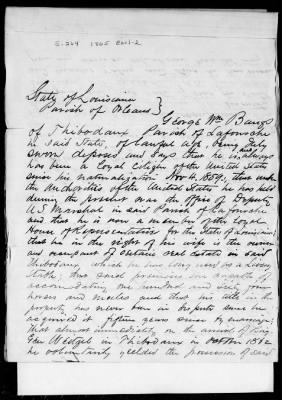 E-264 1865
State of Louisiana }
Parish of Orleans }
George Wm Bangs
of Thibodaux Parish of Lafourche
in said State, of lawful age, being duly
sworn deposes and says that he is, and has always
been a loyal citizen of the United States
since his naturalization Nov 4. 1859, that under
the Authorities of the United States he has held
during the present war the Office of Deputy
U.S. Marshal in said Parish of Lafourche
and that he is now a member of the Loyal
House of Representatives for the State of Louisiana;
that he in the right of his wife is the owner
and occupant of certain real estate in said
Thibodaux which as a livery
stable, that said premises are capable of
accommodating one hundred and sixty four
horses and mules and that his title in the
property has never been in dispute since he
acquired it fifteen years since by marriage;
That almost immediately on the arrival of Brig.
Gen Weitzel in Thibodaux in October 1862
he voluntarily yielded the possession of said